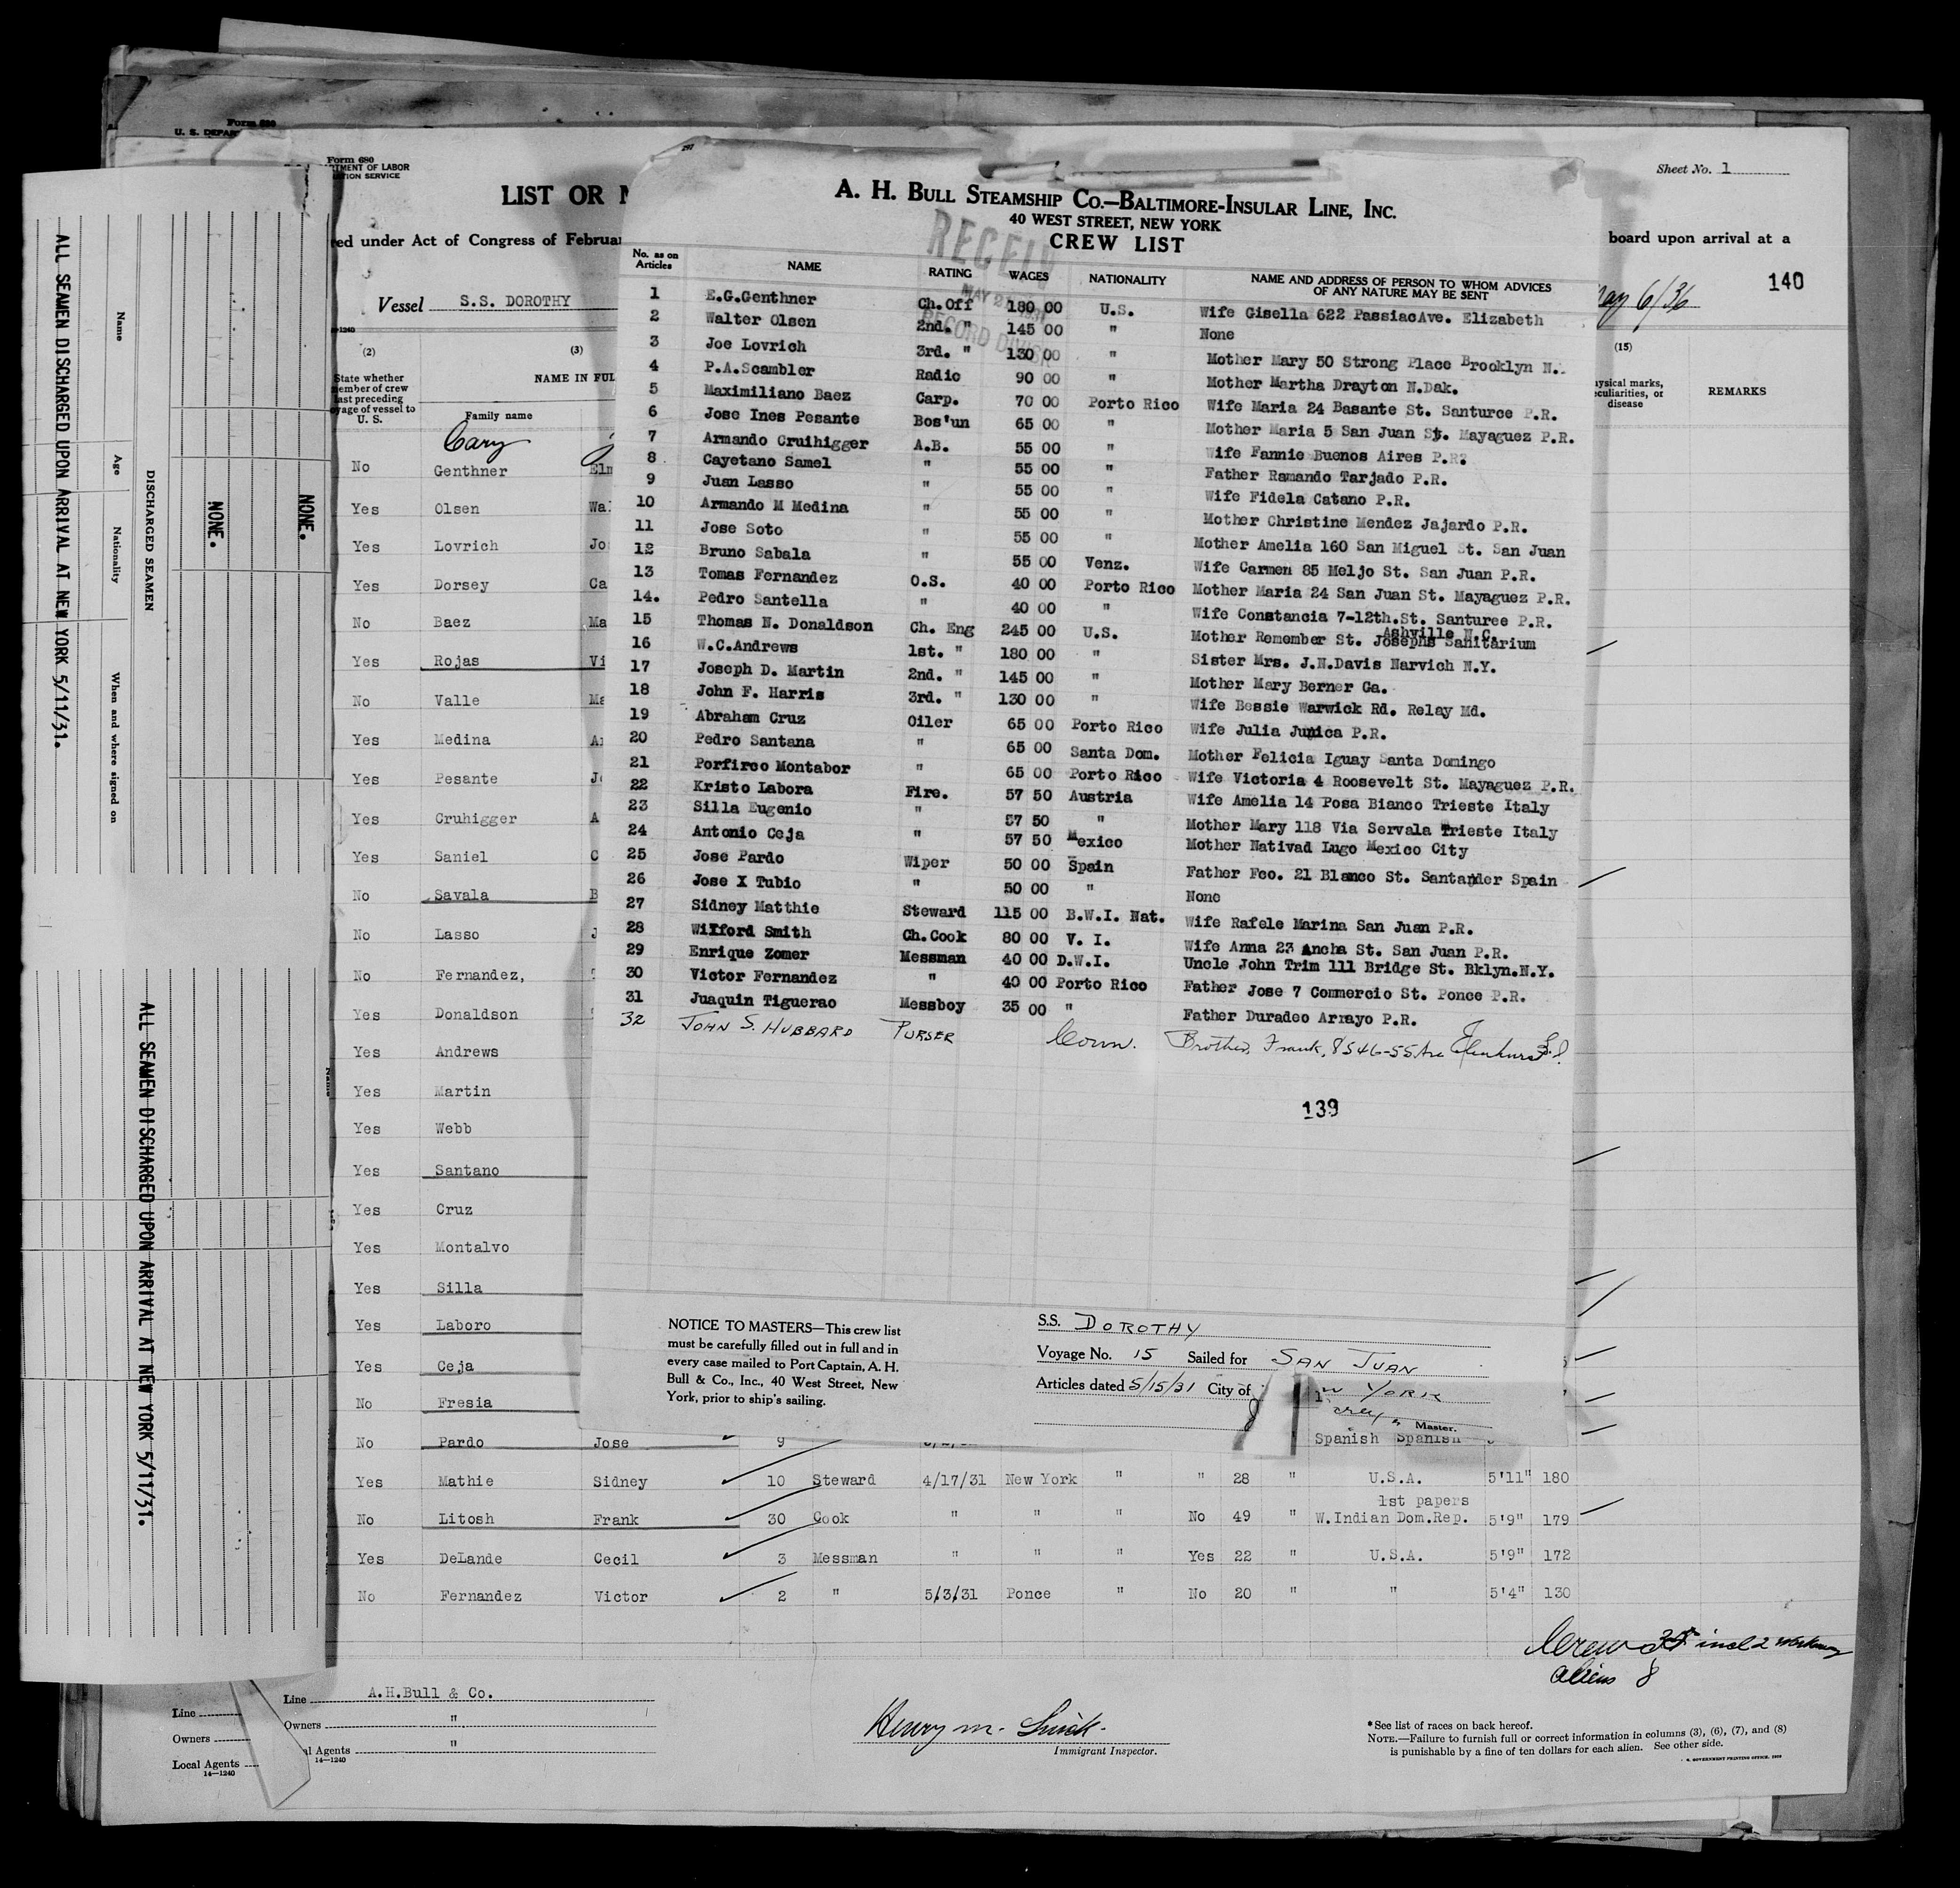 Form 680
U. S. DEPAR
Form 680
RTMENT OF LABOR
TION SERVICE
Sheet No. 1
LIST OR
ed under Act of Congress of Februar
board upon arrival at a
140
Vessel S.S. DOROTHY
May 6/36
(2)
(3)
(15)
State whether
member of crew
last preceding
voyage of vessel to
U. S.
NAME IN FUL
Family name
ysical marks,
eculiarities, or
disease
REMARKS
Cary
No Genthner Elm
Yes Olsen Wa
Yes Lovrich Jo
Yes Dorsey Ca
No Baez Ma
Yes Rojas Vi
No Valle Ma
Yes Medina A
Yes Pesante J
Yes Cruhigger A
Yes Saniel C
No Savala B
No Lasso J
No Fernandez,
Yes Donaldson
Yes Andrews
Yes Martin
Yes Webb
Yes Santano
Yes Cruz
Yes Montalvo
Yes Silla
Yes Laboro
Yes Ceja
No Fresia
No Pardo Jose 9 Spanish Spanish
Yes Mathie Sidney 10 Steward 4/17/31 New York " " 28 " U.S.A. 5'11" 180
1st papers
No Litosh Frank 30 Cook " " " No 49 " W.Indian Dom.Rep. 5'9" 179
Yes DeLande Cecil 3 Messman " " " Yes 22 " U.S.A. 5'9" 172
No Fernandez Victor 2 " 5/3/31 Ponce " No 20 " " 5'4" 130
Crew 35 incl 2 workaway
aliens 8
297
A. H. BULL STEAMSHIP CO.—BALTIMORE-INSULAR LINE, INC.
40 WEST STREET, NEW YORK
CREW LIST
RECEIV
MAY 2 1931
RECORD DIVIS
No. as on
Articles
NAME RATING WAGES NATIONALITY NAME AND ADDRESS OF PERSON TO WHOM ADVICES
OF ANY NATURE MAY BE SENT
1 E.G.Genthner Ch.Off 180 00 U.S. Wife Gisella 622 PassiacAve. Elizabeth
2 Walter Olsen 2nd. " 145 00 " None
3 Joe Lovrich 3rd. " 130 00 " Mother Mary 50 Strong Place Brooklyn N.
4 P.A.Scambler Radio 90 00 " Mother Martha Drayton N.Dak.
5 Maximiliano Baez Carp. 70 00 Porto Rico Wife Maria 24 Basante St. Santurce P.R.
6 Jose Ines Pesante Bos'un 65 00 " Mother Maria 5 San Juan St. Mayaguez P.R.
7 Armando Cruihigger A.B. 55 00 " Wife Fannie Buenos Aires P.R.
8 Cayetano Samel " 55 00 " Father Ramando Tarjado P.R.
9 Juan Lasso " 55 00 " Wife Fidela Catano P.R.
10 Armando M Medina " 55 00 " Mother Christine Mendez Jajardo P.R.
11 Jose Soto " 55 00 " Mother Amelia 160 San Miguel St. San Juan
12 Bruno Sabala " 55 00 Venz. Wife Carmen 85 Meljo St. San Juan P.R.
13 Tomas Fernandez O.S. 40 00 Porto Rico Mother Maria 24 San Juan St. Mayaguez P.R.
14. Pedro Santella " 40 00 " Wife Constancia 7-12th.St. Santuree P.R.
Ashville N.C.
15 Thomas N. Donaldson Ch. Eng 245 00 U.S. Mother Remember St. Josephs Sanitarium
16 W.C.Andrews 1st. " 180 00 " Sister Mrs. J.N.Davis Narvich N.Y.
17 Joseph D. Martin 2nd. " 145 00 " Mother Mary Berner Ga.
18 John F. Harris 3rd. " 130 00 " Wife Bessie Warwick Rd. Relay Md.
19 Abraham Cruz Oiler 65 00 Porto Rico Wife Julia Junica P.R.
20 Pedro Santana " 65 00 Santa Dom. Mother Felicia Iguay Santa Domingo
21 Porfirco Montabor " 65 00 Porto Rico Wife Victoria 4 Roosevelt St. Mayaguez P.R.
22 Kristo Labora Fire. 57 50 Austria Wife Amelia 14 Posa Bianco Trieste Italy
23 Silla Eugenio " 57 50 " Mother Mary 118 Via Servala Trieste Italy
24 Antonio Ceja " 57 50 Mexico Mother Nativad Lugo Mexico City
25 Jose Pardo Wiper 50 00 Spain Father Fco. 21 Blanco St. Santander Spain
26 Jose X Tubio " 50 00 " None
27 Sidney Matthie Steward 115 00 B.W.I. Nat. Wife Rafele Marina San Juan P.R.
28 Wilford Smith Ch.Cook 80 00 V. I. Wife Anna 23 Ancha St. San Juan P.R.
29 Enrique Zomer Messman 40 00 D.W.I. Uncle John Trim 111 Bridge St. Bklyn.N.Y.
30 Victor Fernandez " 40 00 Porto Rico Father Jose 7 Commercio St. Ponce P.R.
31 Juaquin Tiguerao Messboy 35 00 " Father Duradeo Arrayo P.R.
32 JOHN S. HUBBARD PURSER Conn. Brother, Frank, 8546-55 Ave Elmhurst L.I.
139
NOTICE TO MASTERS—This crew list
must be carefully filled out in full and in
every case mailed to Port Captain, A. H.
Bull & Co., Inc., 40 West Street, New
York, prior to ship's sailing.
S.S. DOROTHY
Voyage No. 15 Sailed for SAN JUAN
Articles dated 5/15/31 City of
w YORK
Master.
ALL SEAMEN DISCHARGED UPON ARRIVAL AT NEW YORK 5/11/31.
Name Age Nationality When and where signed on
DISCHARGED SEAMEN
NONE.
NONE.
ALL SEAMEN DISCHARGED UPON ARRIVAL AT NEW YORK 5/11/31.
Name
Line
Owners
Local Agents
14—1240
Line A.H.Bull & Co.
Owners "
al Agents "
14—1240
Henry M.
Immigrant Inspector.
*See list of races on back hereof.
NOTE.—Failure to furnish full or correct information in columns (3), (6), (7), and (8)
is punishable by a fine of ten dollars for each alien. See other side.
GOVERNMENT PRINTING OFFICE